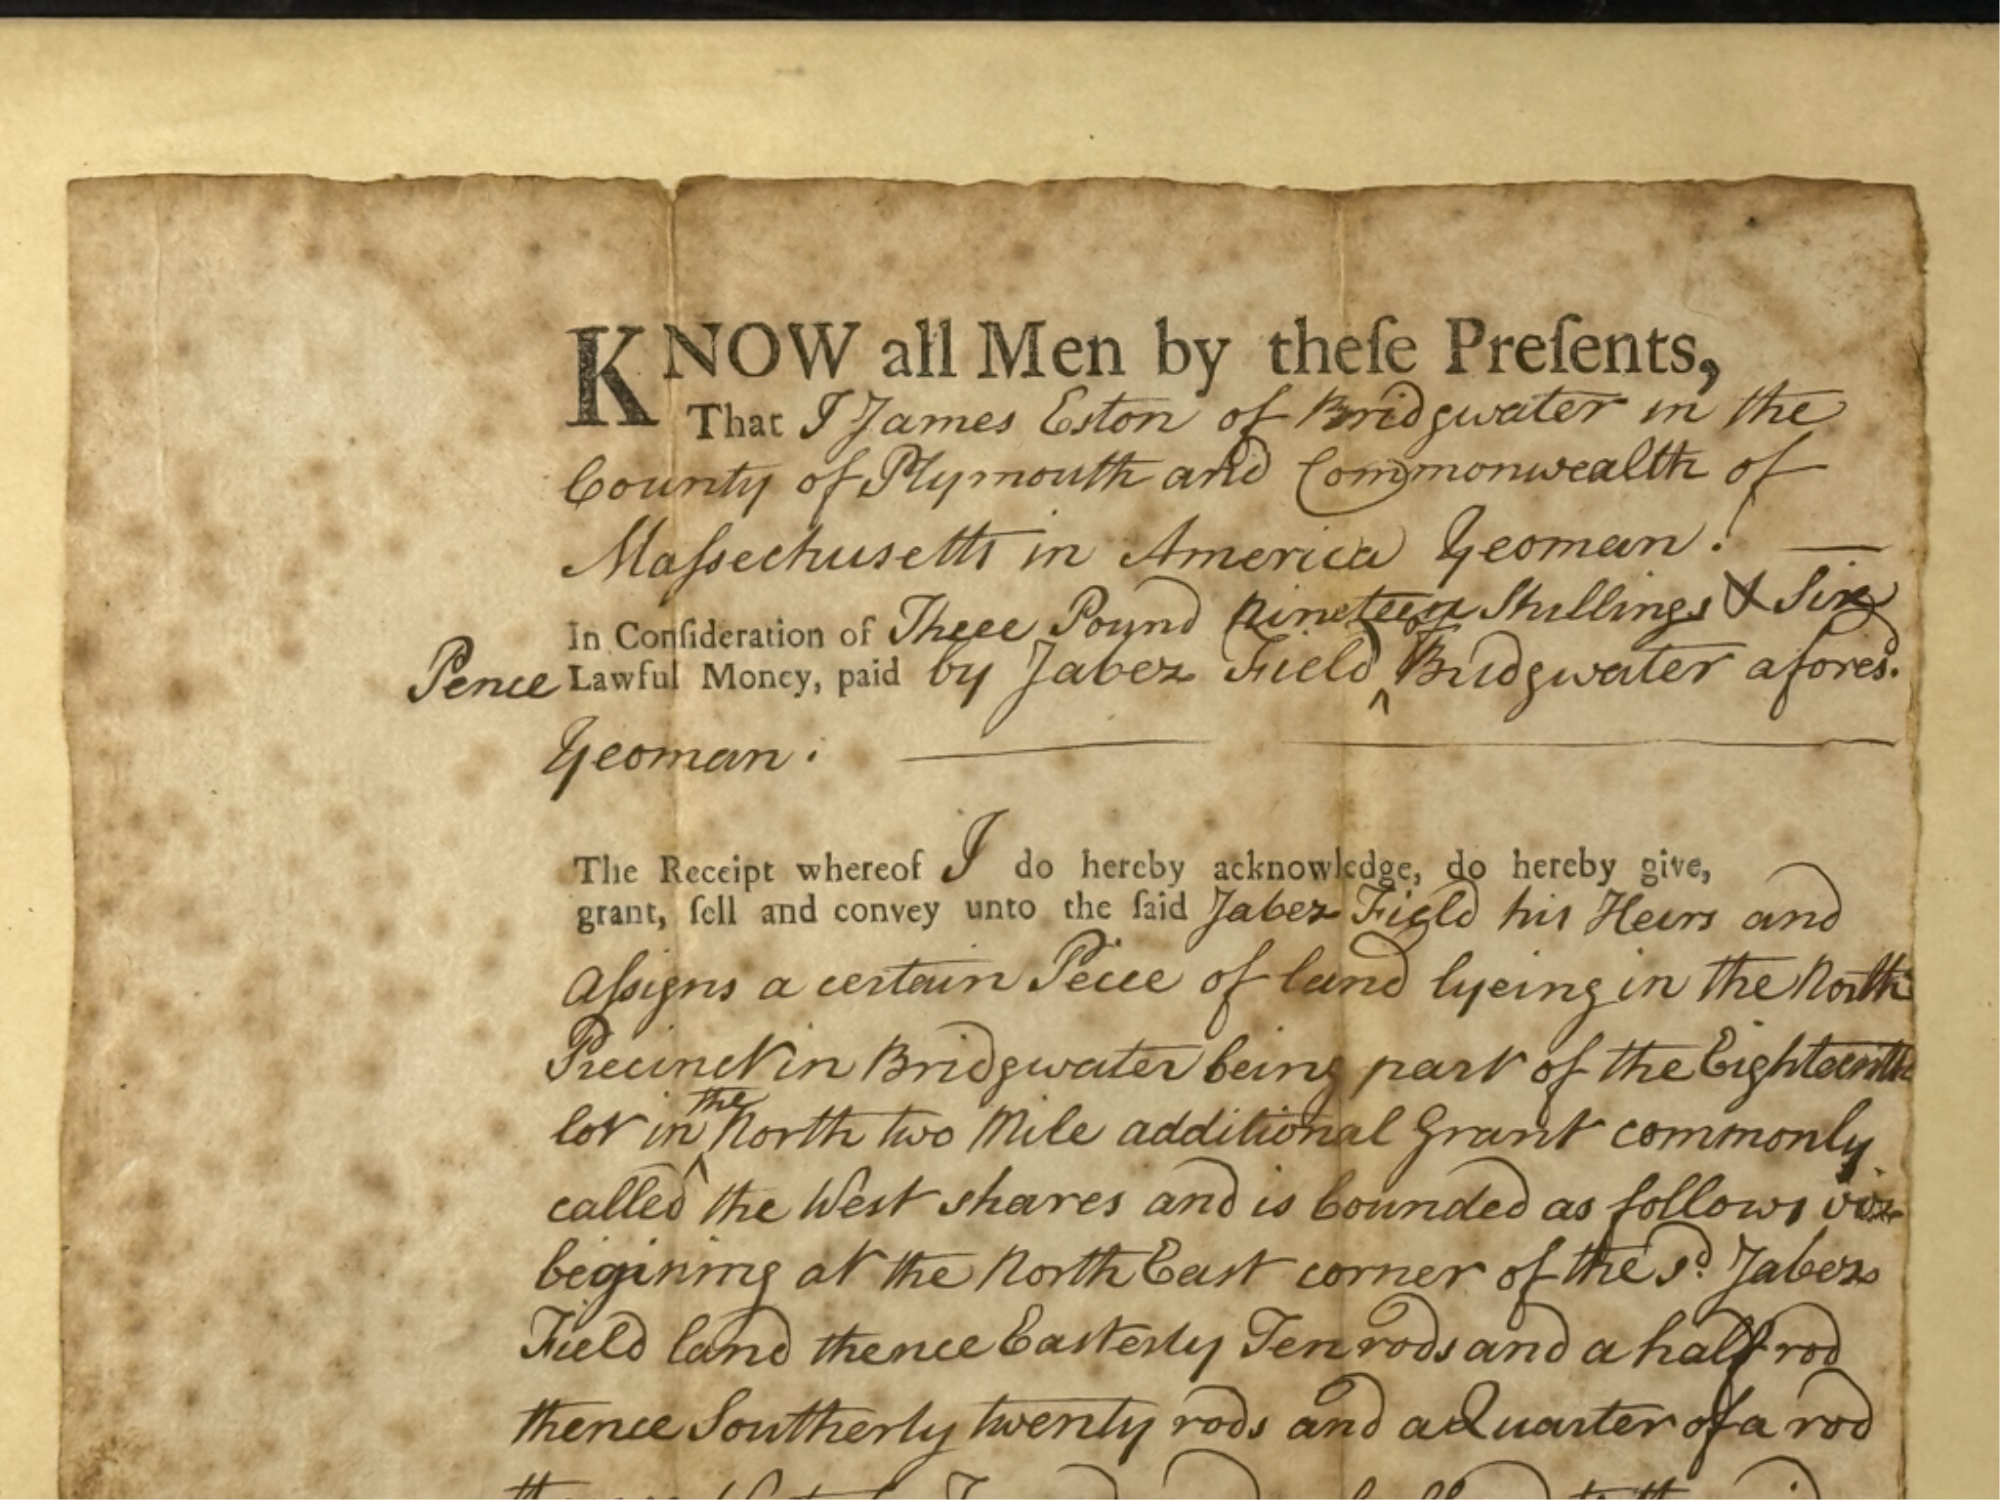 KNOW all Men by theſe Preſents,
That I James Eston of Bridgwater in the
County of Plymouth and Commonwealth of
Maſsechusetts in America Yeoman: —
In Conſideration of Three Pound nineteen Shillings & Six
Pence Lawful Money, paid by Jabez Field of Bridgwater afores.
Yeoman:
The Receipt whereof I do hereby acknowledge, do hereby give,
grant, ſell and convey unto the ſaid Jabez Field his Heirs and
Aſsigns a certain Peice of land lyeing in the North
Precinct in Bridgwater being part of the Eighteenth
lot in the North two Mile additional Grant commonly
called the West shares and is bounded as follows viz
begining at the North East corner of the sd. Jabez
Field land thence Easterly Ten rods and a half rod
thence Southerly twenty rods and a Quarter of a rod